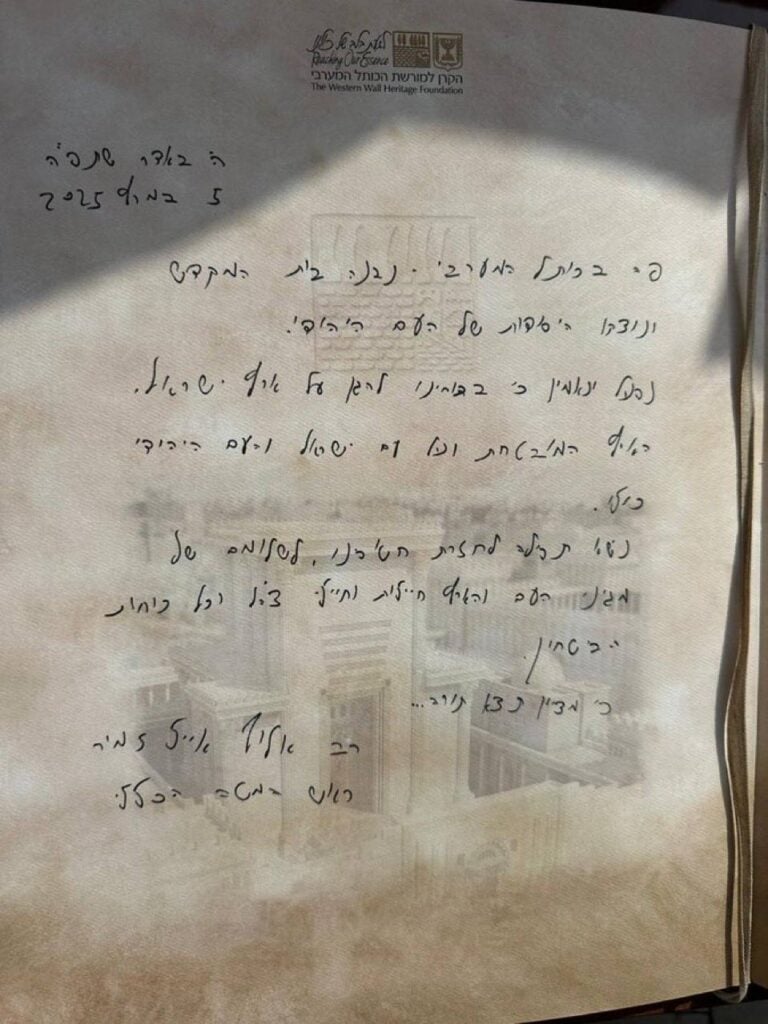 Reaching Our Essence
הקרן למורשת הכותל המערבי
The Western Wall Heritage Foundation
ה' באדר שתפ"ה
5 במרץ 2025
פה בכותל המערבי נבנה בית המקדש
ונוצקו היסודות של העם היהודי.
כי בכוחינו להגן על ארץ ישראל,
הארץ המובטחת וכל עם ישראל והעם היהודי
כולו.
נשא תפילה לחזרת חטופינו, לשלומם של
מגיני העם והארץ חיילות וחיילי צה"ל וכל כוחות
הביטחון.
כי מציון תצא תורה...
רב אלוף אייל זמיר
ראש המטה הכללי